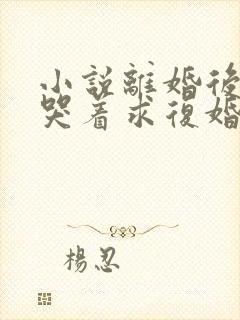 小說離婚後
哭着求復婚
楊忍